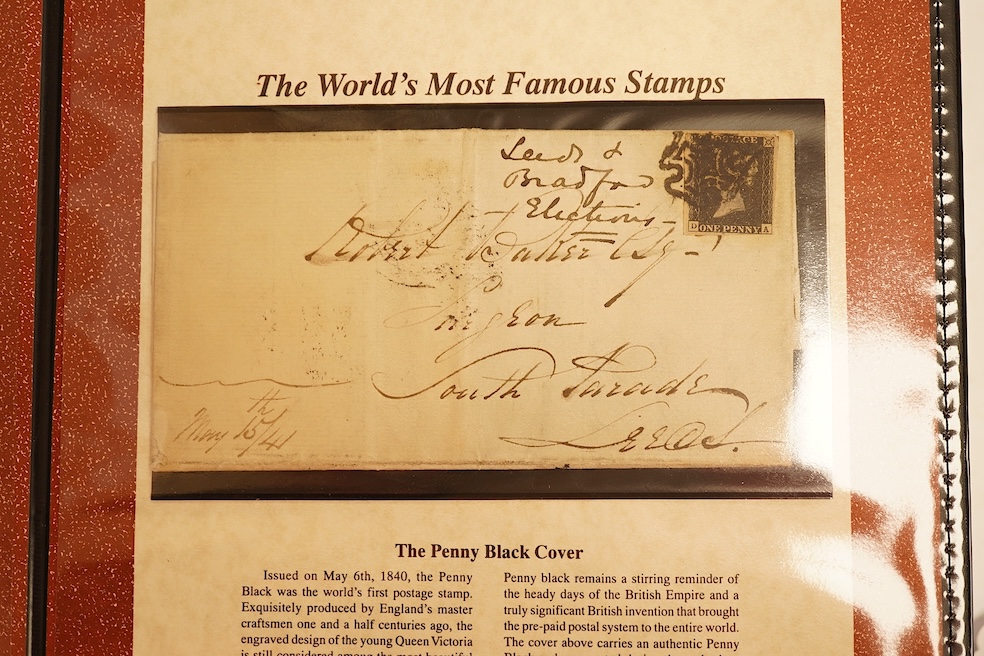 The World's Most Famous Stamps
Leeds &
Bradford
Elections
POSTAGE
D ONE PENNY A
Robert Walker Esq
Surgeon
South Parade
Leeds.
May 15th/41
The Penny Black Cover
Issued on May 6th, 1840, the Penny
Black was the world's first postage stamp.
Exquisitely produced by England's master
craftsmen one and a half centuries ago, the
engraved design of the young Queen Victoria
is still considered among the most beautiful
Penny black remains a stirring reminder of
the heady days of the British Empire and a
truly significant British invention that brought
the pre-paid postal system to the entire world.
The cover above carries an authentic Penny